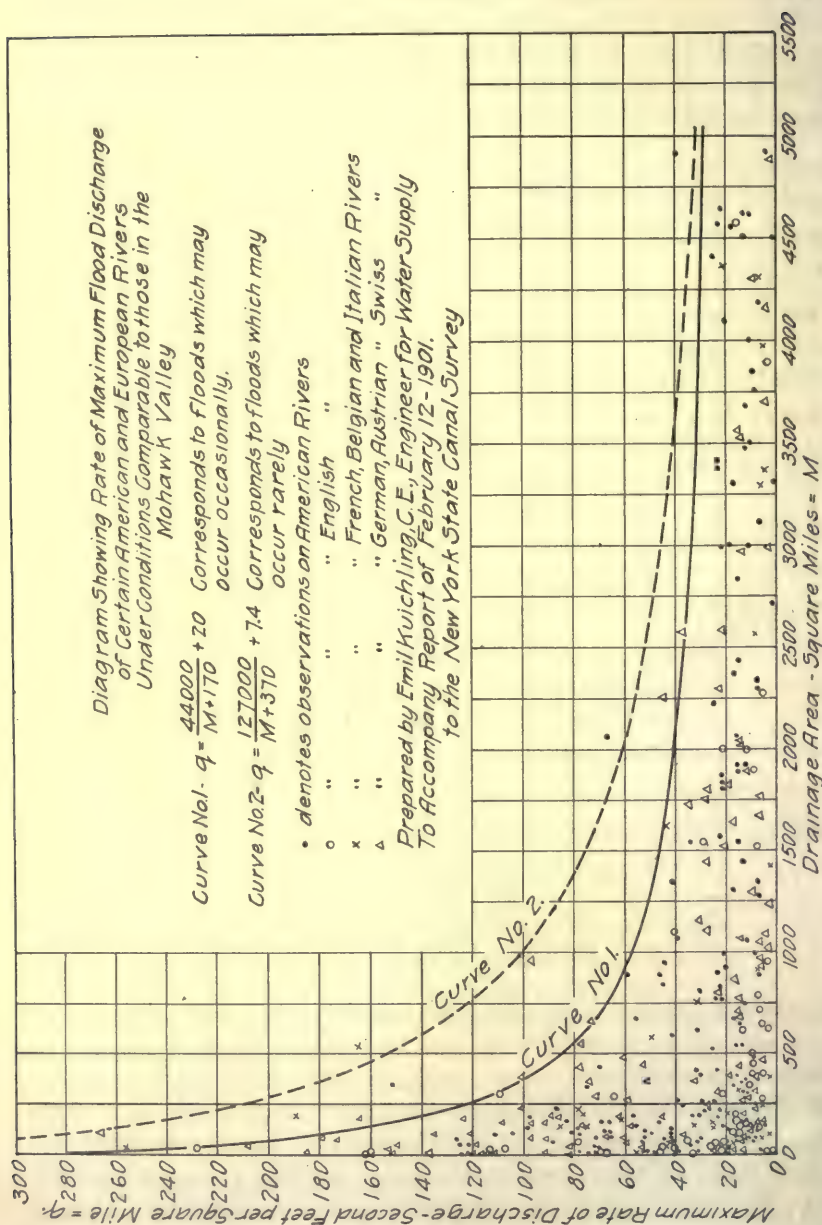 Diagram Showing Rate of Maximum Flood Discharge
of Certain American and European Rivers
Under Conditions Comparable to those in the
Mohawk Valley
Curve No.1- q = 44000/M+170 +20 Corresponds to floods which may
occur occasionally.
Curve No.2- q = 127000/M+370 +7.4 Corresponds to floods which may
occur rarely
• denotes observations on American Rivers
o " " " English "
x " " " French, Belgian and Italian Rivers
△ " " " German, Austrian " Swiss "
Prepared by Emil Kuichling, C.E., Engineer for Water Supply
To Accompany Report of February 12-1901.
to the New York State Canal Survey
Curve No. 2.
Curve No 1.
Maximum Rate of Discharge-Second Feet per Square Mile = q.
300
280
260
240
220
200
180
160
140
120
100
80
60
40
20
0
0 500 1000 1500 2000 2500 3000 3500 4000 4500 5000 5500
Drainage Area - Square Miles = M